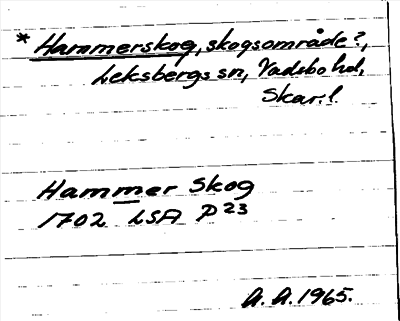 * Hammerskog, skogsområde?,
Leksbergs sn, Vadsbo hd,
Skar. l.
Hammer Skog
1702 LSA P 23
A. A. 1965.